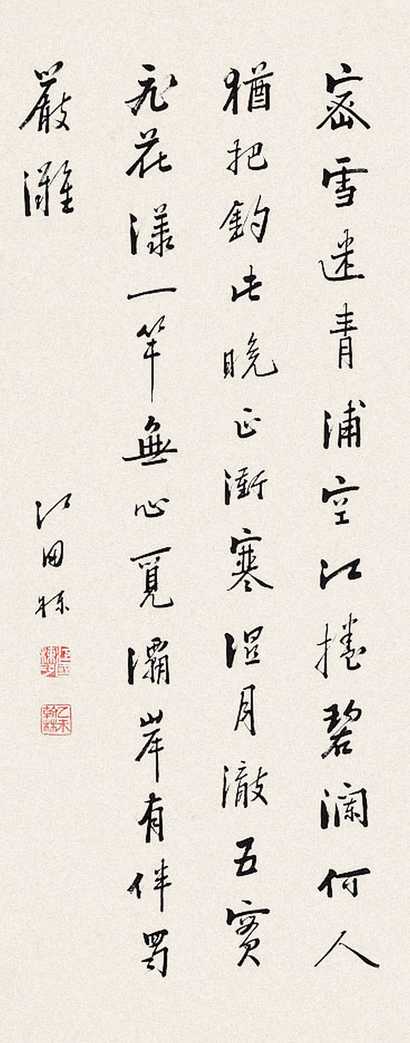 密雪迷青浦空江捲碧瀾何人
猶把釣此晚正衝寒湿月澈五
飛花漾一竿無心覓灞岸有伴
嚴灘
江国棟
乙未翰林